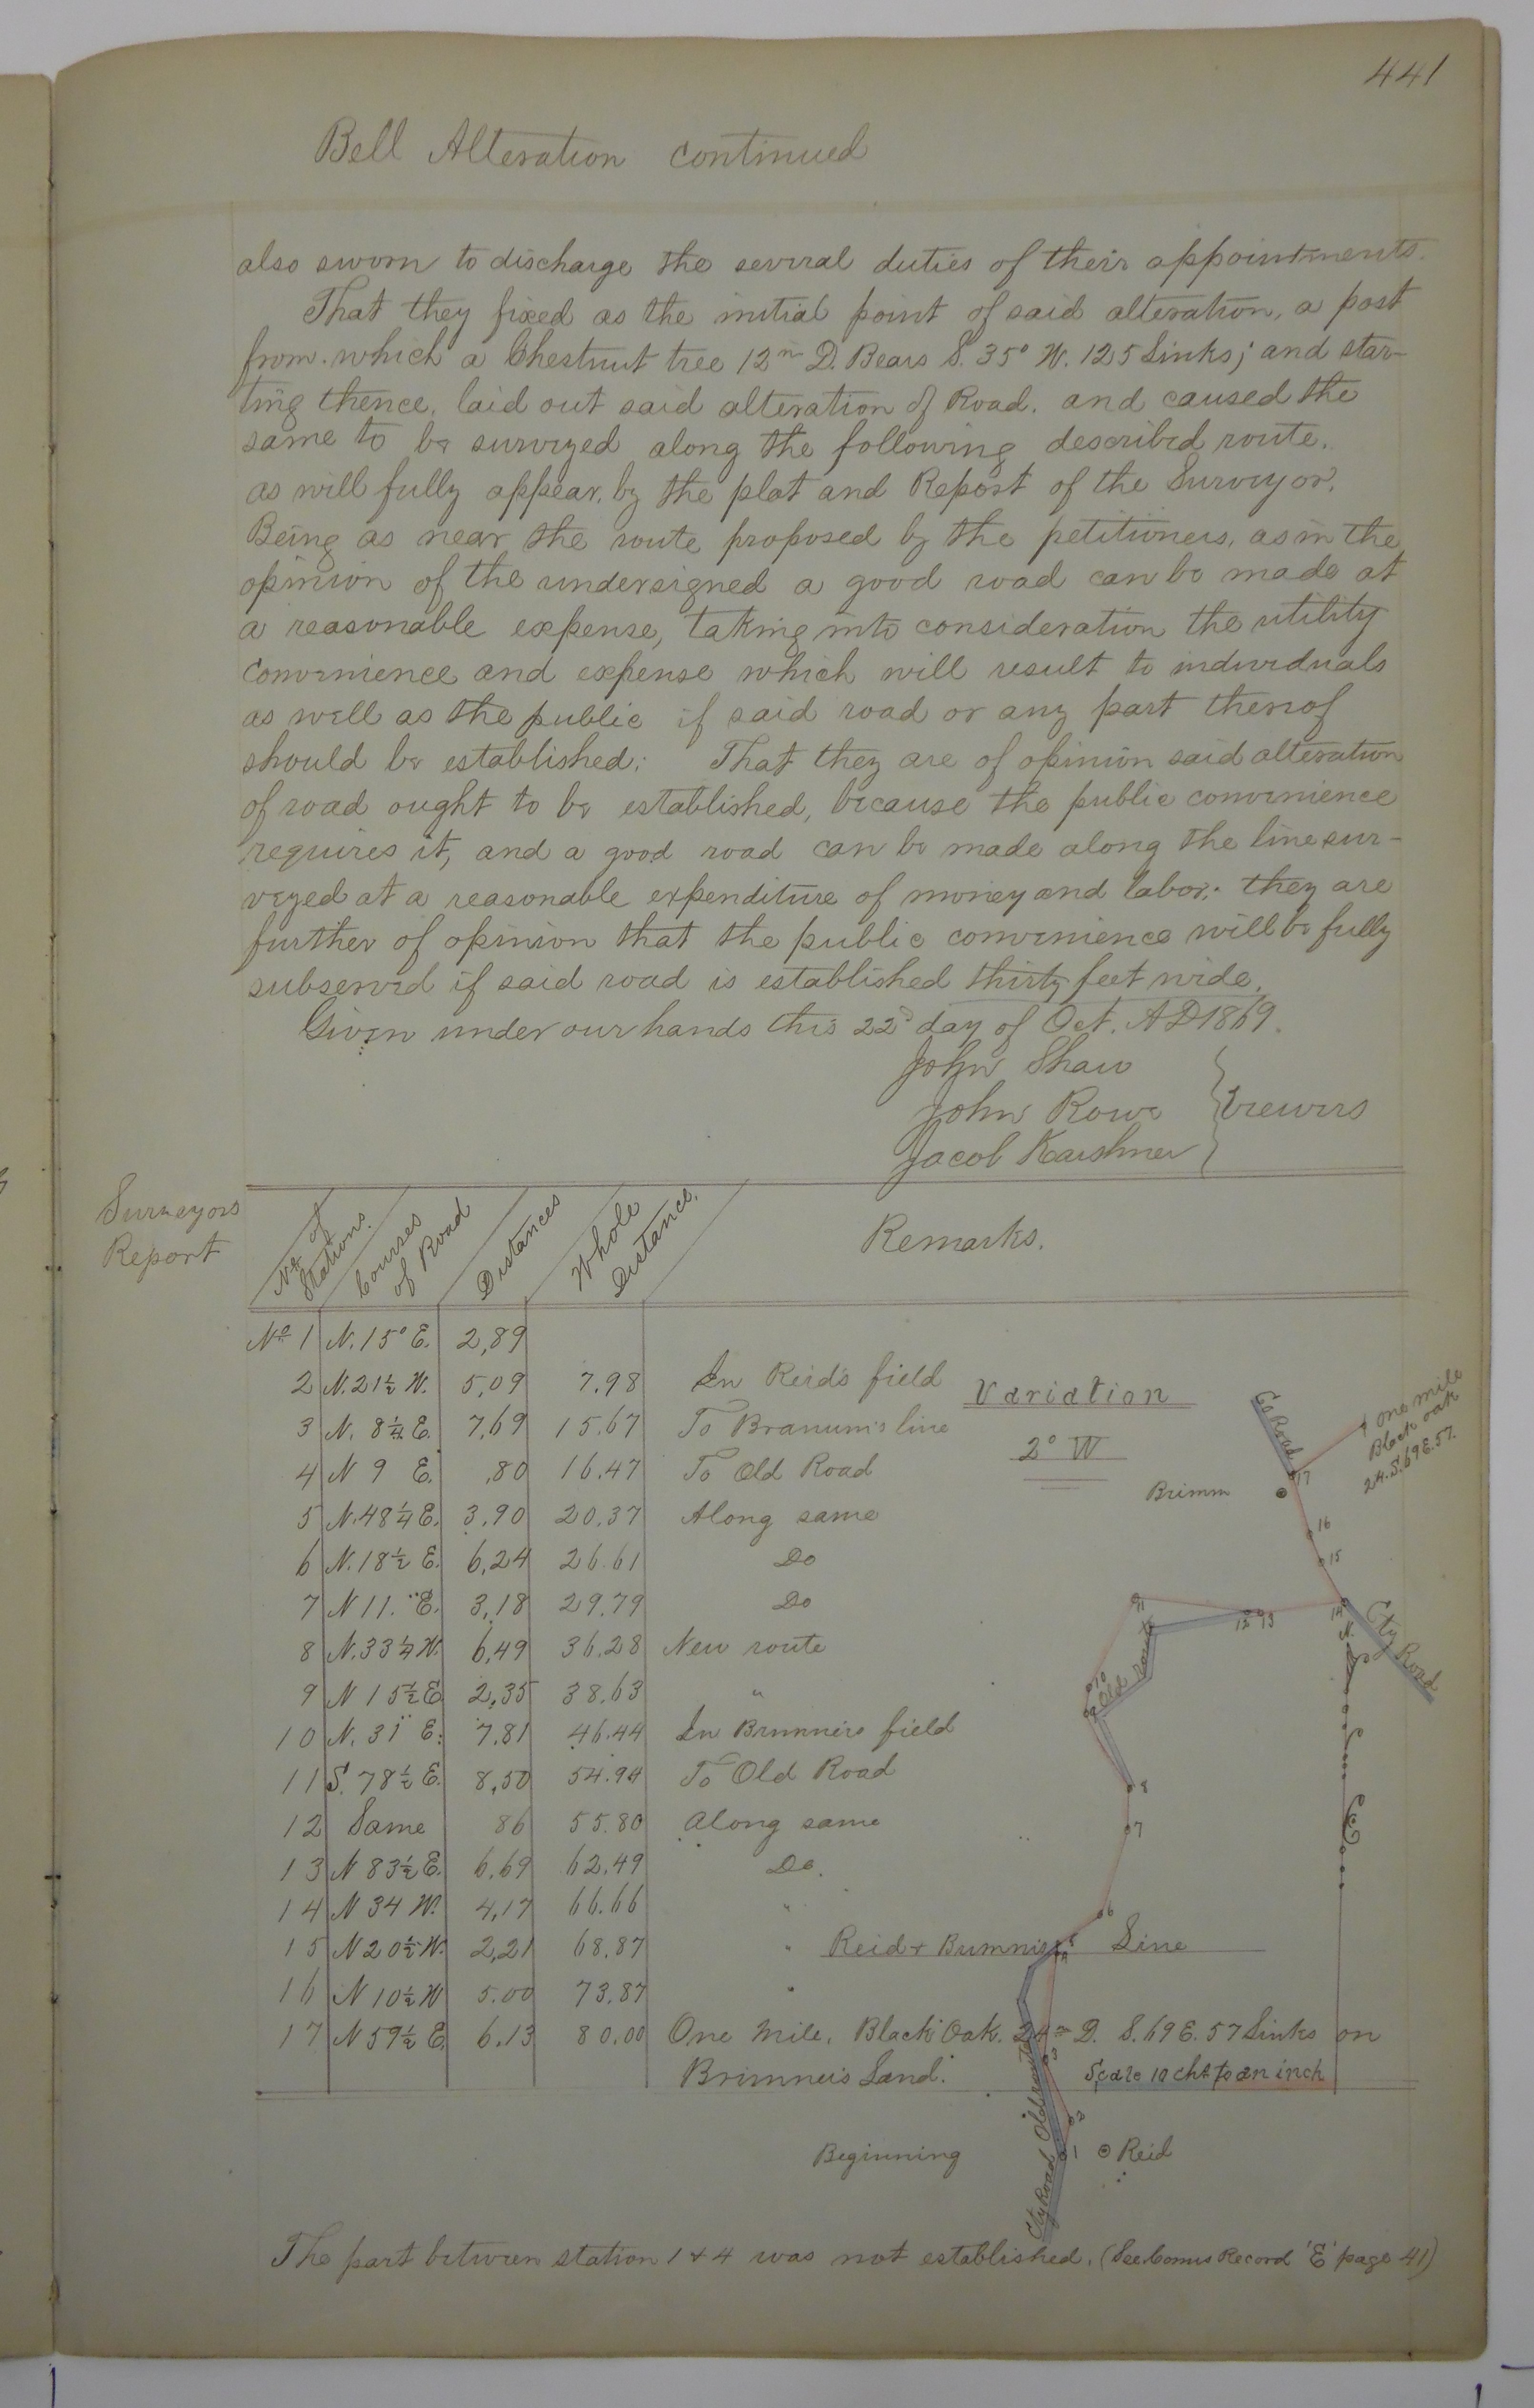 441
Bell Alteration continued
also sworn to discharge the several duties of their appointments.
That they fixed as the initial point of said alteration, a post
from which a Chestnut tree 12 in D. Bears S. 35° W. 125 Links; and star-
ting thence, laid out said alteration of Road. and caused the
same to be surveyed along the following described route.
as will fully appear, by the plat and Report of the Surveyor.
Being as near the route proposed by the petitioners, as in the
opinion of the undersigned a good road can be made at
a reasonable expense, taking into consideration the utility
convenience and expense which will result to individuals
as well as the public if said road or any part thereof
should be established; That they are of opinion said alteration
of road ought to be established, because the public convenience
requires it, and a good road can be made along the line sur-
veyed at a reasonable expenditure of money and labor; they are
further of opinion that the public convenience will be fully
subserved if said road is established thirty feet wide.
Given under our hands this 22d day of Oct. A D 1869.
John Shaw
John Rowe } viewers
Jacob Karshner
Surveyors
Report
No of Stations. Courses of Road Distances Whole Distance. Remarks.
No 1 N. 15° E. 2,89
2 N. 21½ W. 5,09 7.98 In Reid's field
3 N. 8¼ E. 7,69 15.67 To Branum's line
4 N 9 E. ,80 16.47 To Old Road
5 N. 48¼ E. 3,90 20.37 Along same
6 N. 18½ E. 6,24 26.61 Do
7 N 11. E. 3,18 29.79 Do
8 N. 33¼ W. 6,49 36.28 New route
9 N 15½ E 2,35 38.63 "
10 N. 31 E. 7.81 46.44 In Brimners field
11 S. 78½ E. 8,50 54.94 To Old Road
12 Same 86 55.80 Along same
13 N 83½ E. 6,69 62.49 Do.
14 N 34 W. 4,17 66.66 "
15 N 20½ W. 2,21 68.87 "
16 N 10½ W 5.00 73.87 "
17 N 59½ E 6.13 80.00 One Mile, Black Oak. 24 in D. S. 69 E. 57 Links on
Brimner's Land.
Variation
2° W
Co Road
one mile
Black oak
24. S. 69 E. 57.
17
Brimm
16
15
11
12 13
14
Cty Road
N.
Old route
10
9
8
7
6
Reid + Bumners Line
5
4
3
Scale 10 chs to an inch
2
Old route
Cty Road
Beginning
1
Reid
The part between station 1 & 4 was not established. (See Comrs Record 'E' page 41)